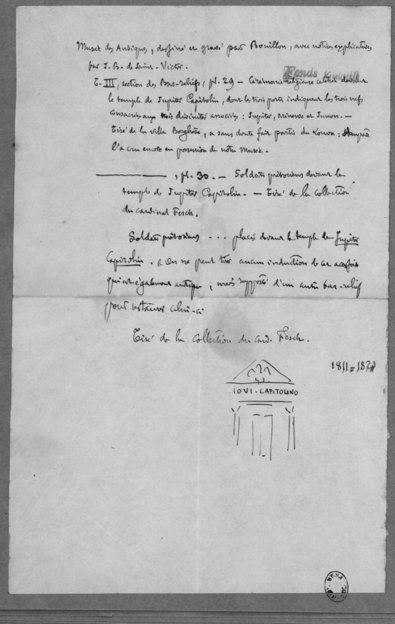 Musée des Antiques, dessiné et gravé par Bouillon, avec notices explicatives
par J. B. de Saint-Victor.
T. III, section des Bas-reliefs, pl. 29 — Cérémonie religieuse
Fonds
le temple de Jupiter Capitolin, dont les trois portes indiquent les trois nefs,
consacrées aux trois divinités associées : Jupiter, Minerve et Junon. —
Tiré de la villa Borghèse, a sans doute fait partie du
l'a cru encore en possession de notre Musée.
———— , pl. 30. — Soldats prétoriens devant le
temple de Jupiter Capitolin. — Tiré de la collection
du cardinal Fesch.
Soldats prétoriens ... placés devant le temple de Jupiter
Capitolin. On ne peut tirer aucune induction de ce
qui est également antique, mais rapporté d'un autre bas-relief
pour restaurer celui-ci.
Tiré de la Collection du Card. Fesch.
IOVI · CAPITOLINO